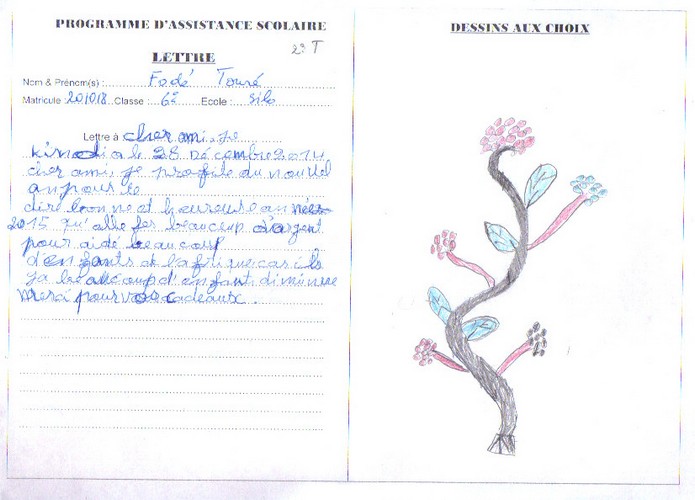 PROGRAMME D'ASSISTANCE SCOLAIRE
2è T
LETTRE
Nom & Prénom(s) : Fodé Touré
Matricule : 201018 Classe : 6è Ecole : silo
Lettre à cher ami, je
kindia le 28 Décembre 2014
cher ami je profite du nouvel
an pour te
dire bonne et heureuse année
2015 qu'alle fer beaucoup d'argent
pour aidé beaucoup
d'enfants de l'afrique car ils
ya beaucoup d'enfant
merci pour vos cadeaux.
DESSINS AUX CHOIX